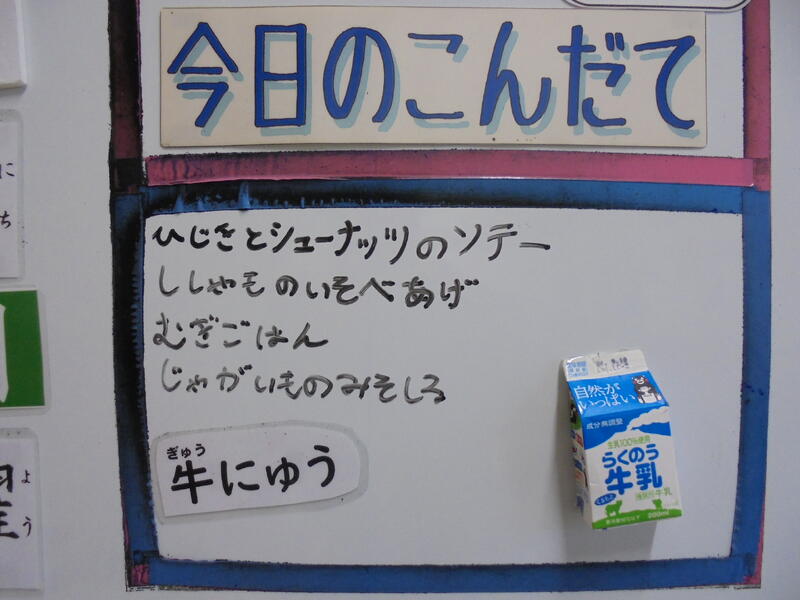 今日のこんだて
ひじきとシューナッツのソテー
ししゃものいそべあげ
むぎごはん
じゃがいものみそしる
ぎゅう
牛にゅう
自然が
いっぱい
成分無調整
生乳100%使用
らくのう
牛乳
200ml
に
ち
よ
う